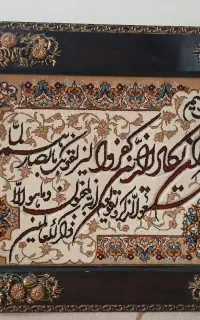 یکاد الذین کفروا لیزلقونک بابصارهم لما
الذکر و یقولون انه لمجنون و ما هو الا
ذکر للعالمین